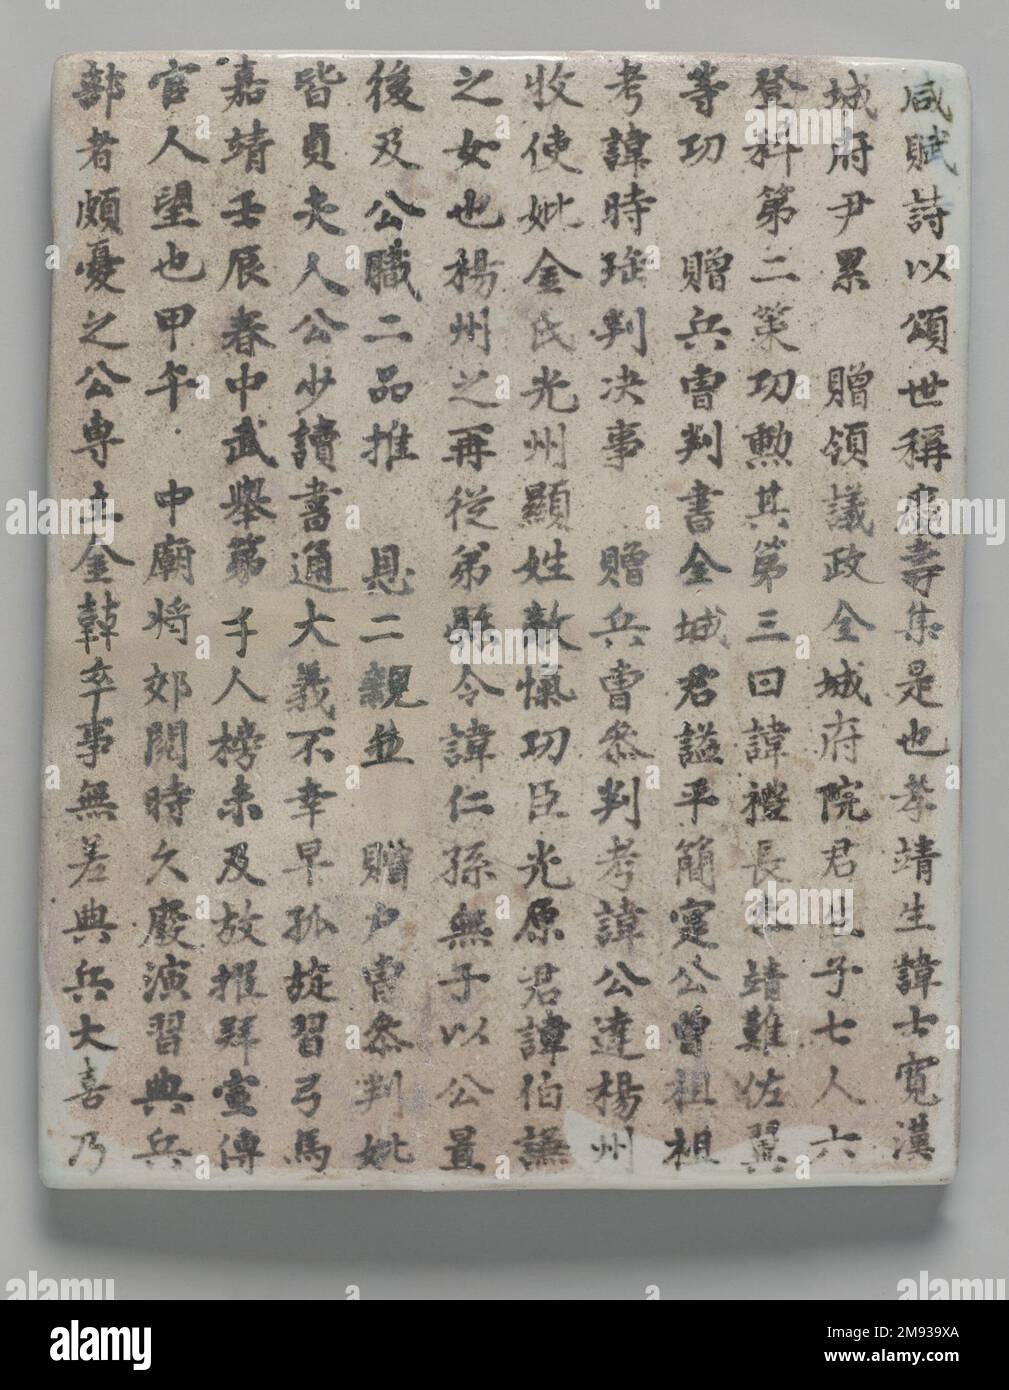 咸賦詩以頌世稱慶壽集是也孝靖生諱士寬漢
城府尹累 贈領議政全城府院君生子七人六
登科第二策功勲其第三曰諱禮長 靖難佐翼
等功 贈兵曺判書全城君謚平簡寔公曾祖祖
考諱時珤判决事 贈兵曺叅判考諱公達楊州
牧使妣金氏光州顯姓敵愾功臣光原君諱伯謙
之女也楊州之再從弟縣令諱仁孫無子以公置
後及公職二品推 恩二親並 贈戶曺叅判妣
皆貞夫人公少讀書通大義不幸早孤旋習弓馬
嘉靖壬辰春中武舉第 子人榜未及放擢拜宣傳
官人望也甲午 中廟將郊閱時久廢演習典兵
部者頗憂之公専主金鼓卒事無差典兵大喜乃
alamy
Image ID: 2M939XA
www.alamy.com